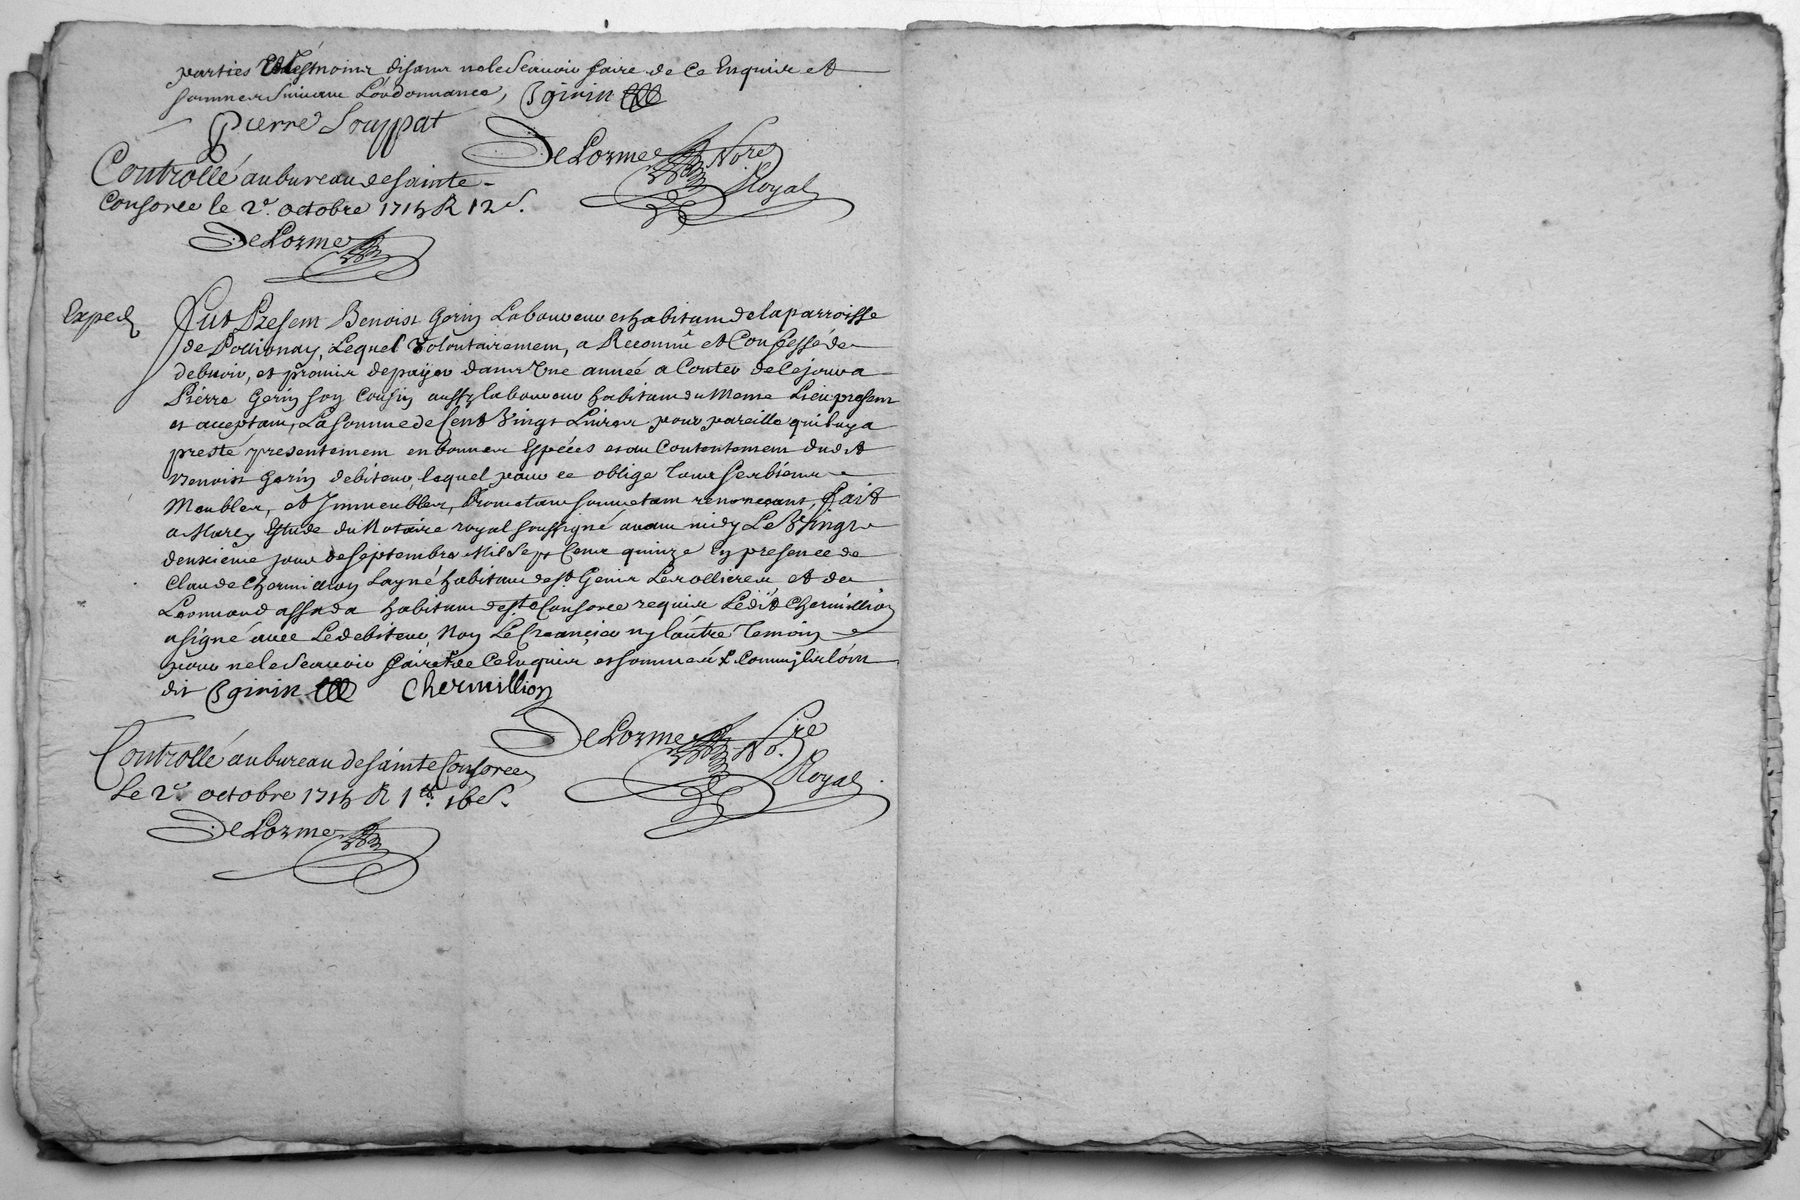 parties et tesmoins disans ne le sçauoir faire de ce Enquis et
sommes suiuant Lordonnance, B girin
Pierre Souppat
DeLorme No.re Royal
Controllé au bureau de sainte
Consorce le 2e. octobre 1715 R 12 s.
DeLorme
Exped
Fut Present Benoist Gerin Laboureur et habitant de la parroisse
de Pollionnay, Lequel volontairement, a Reconnu et Confessé de
debuoir, et promis de payer dans Une année a Conter de Ce jour a
Pierre Gerin son Cousin aussy laboureur habitant du Meme Lieu present
et acceptant, La somme de Cent Vingt Liures pour pareille qui luy a
presté presentement en bonnes Espéces et au Contentement dudit
Benoist Gerin debiteur, lequel pour ce oblige Tous ses biens
Meubles, et Immeubles, Promettant soumettant renonceant, Fait
a Marcy Estude du Notaire royal soussigné auant midy Le Vingt
deuxième jour de septembre Mil Sept Cent quinze En presence de
Claude Chermillion Layné habitant de st. Genis Les ollieres et de
Leonnard assada habitant de ste Consorce requis Ledit Chermillion
a signé auec Le debiteur, Non Le Creancier ny lautre Temoin
pour ne le sçauoir faire de Ce Enquis et sommés
dit B girin Chermillion
DeLorme No.re Royal
Controllé au bureau de sainte Consorce
Le 2e. octobre 1715 R 1tt. 16 s.
DeLorme